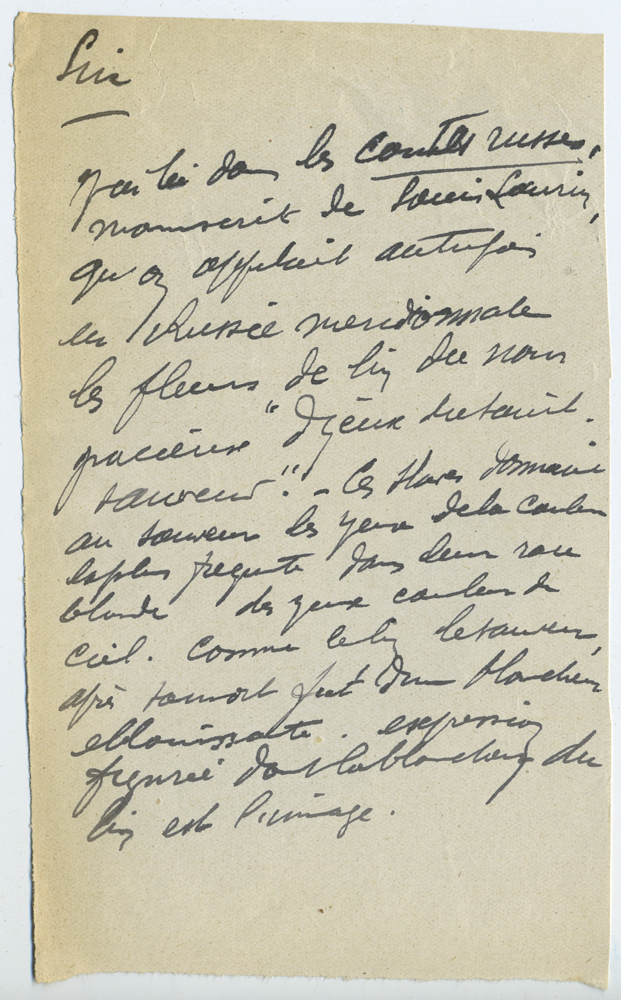 Lin
j'ai lu dans les contes russes,
manuscrit de Louis
qu'on appelait autrefois
en Russie meridionnale
les fleurs de lin du nom
gracieux "d'yeux du saint.
sauveur". - Les slaves donnaient
au sauveur les yeux de la couleur
la plus frequente dans leur race
blonde des yeux couleur de
ciel. comme le lin le sauveur,
après sa mort fut d'une blancheur
eblouissante. expression
figurée dont la blancheur du
lin est l'image.